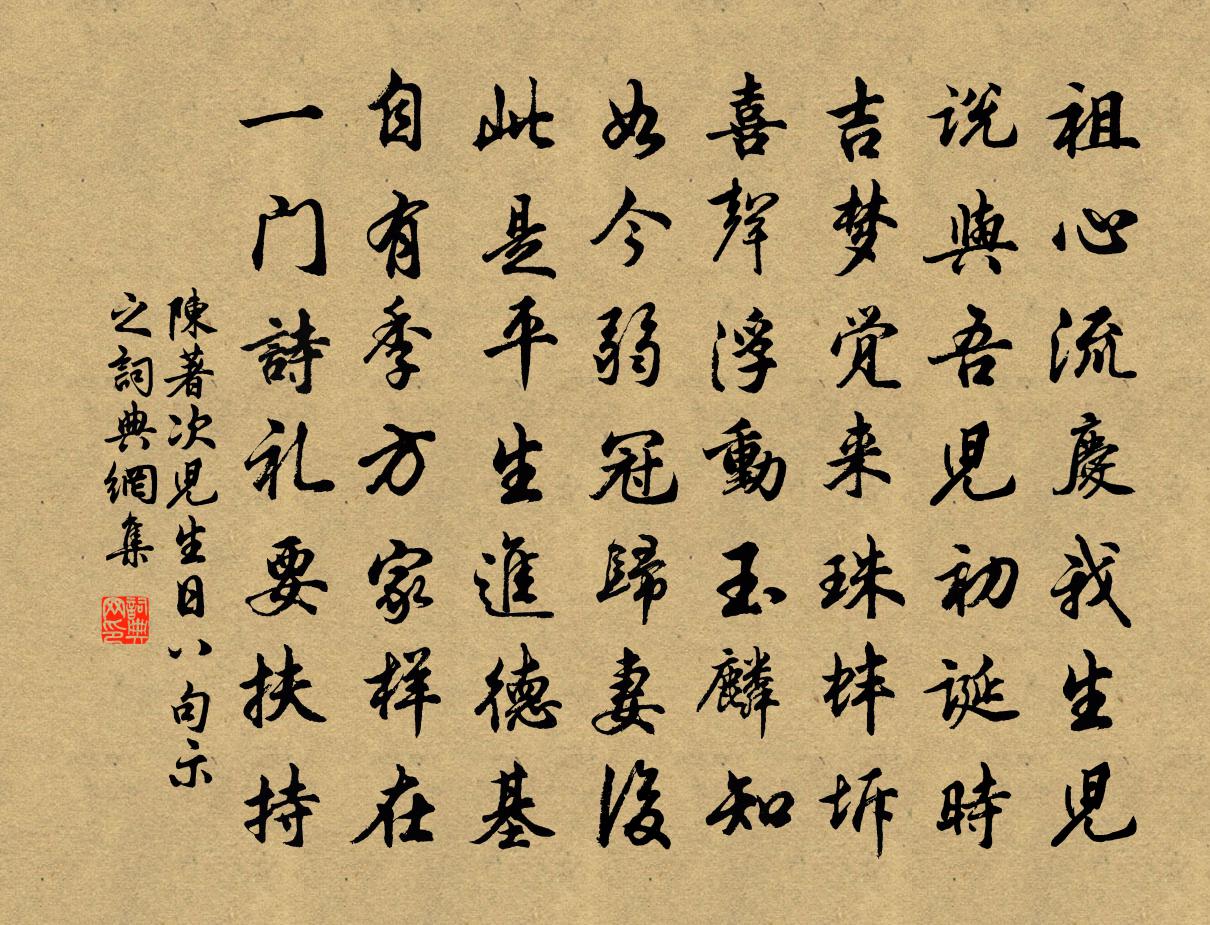 祖心流慶我生児
説與吾児初誕時
吉梦觉来珠蚌坼
喜聲浮動玉麟知
如今弱冠歸妻後
此是平生進德基
自有季方家样在
一门詩礼要扶持
陳著次児生日八句示
之詞典網集
詞典网印